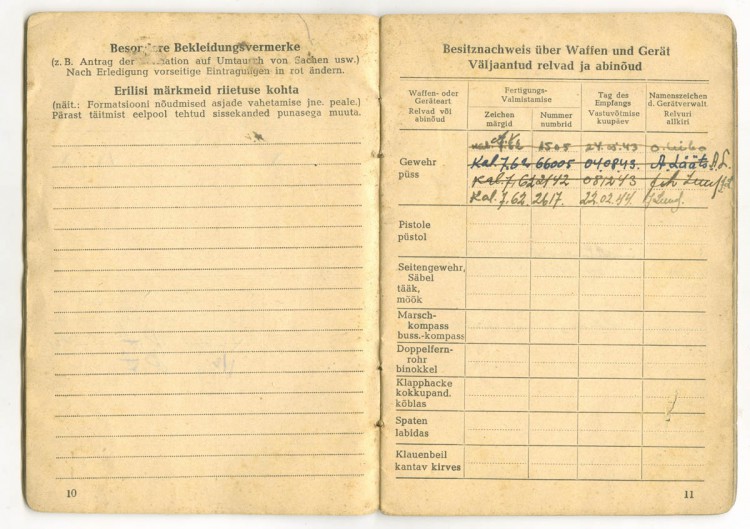 Besondere Bekleidungsvermerke
(z. B. Antrag der Formation auf Umtausch von Sachen usw.)
Nach Erledigung vorseitige Eintragungen in rot ändern.
Erilisi märkmeid riietuse kohta
(näit.: Formatsiooni nõudmised asjade vahetamise jne. peale.)
Pärast täitmist eelpool tehtud sissekanded punasega muuta.
10
Besitznachweis über Waffen und Gerät
Väljaantud relvad ja abinõud
Waffen- oder
Geräteart
Relvad või
abinõud
Fertigungs-
Valmistamise
Zeichen
märgid
Nummer
numbrid
Tag des
Empfangs
Vastuvõtmise
kuupäev
Namenszeichen
d. Gerätverwalt.
Relvuri
allkiri
Gewehr
püss
Kal. 7,62 1505 24.05.43
Kal. 7,62 66005 040843. A. Lääts
Kal. 7,62 2142 081243
Kal. 7,62. 2617. 22.02.44.
Pistole
püstol
Seitengewehr,
Säbel
tääk,
mõõk
Marsch-
kompass
buss.-kompass
Doppelfern-
rohr
binokkel
Klapphacke
kokkupand.
kõblas
Spaten
labidas
Klauenbeil
kantav kirves
11